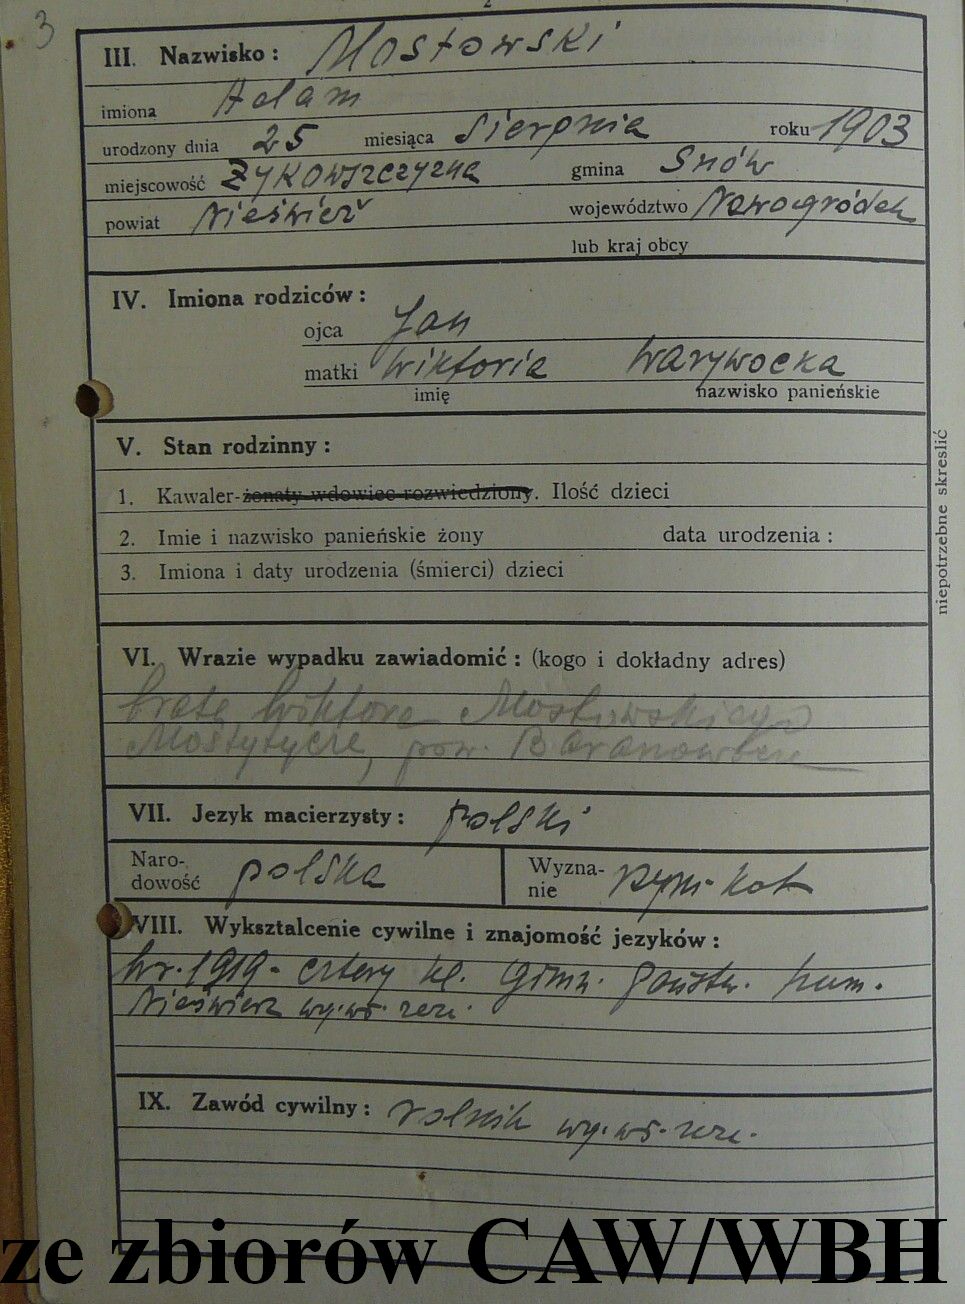 3
2
III. Nazwisko: Mostowski
imiona Adam
urodzony dnia 25 miesiąca Sierpnia roku 1903
miejscowość Żykowszczyzna gmina Snów
powiat Nieśwież województwo Nowogródek
lub kraj obcy
IV. Imiona rodziców:
ojca Jan
matki Wiktoria Warywocka
imię nazwisko panieńskie
V. Stan rodzinny:
1. Kawaler-żonaty wdowiec rozwiedziony. Ilość dzieci
2. Imie i nazwisko panieńskie żony data urodzenia:
3. Imiona i daty urodzenia (śmierci) dzieci
niepotrzebne skreslić
VI. Wrazie wypadku zawiadomić: (kogo i dokładny adres)
brata Wiktora Mostowskiego
pow.
VII. Jezyk macierzysty: polski
Naro-
dowość polska
Wyzna-
nie Rzym-kat
VIII. Wyksztalcenie cywilne i znajomość jezyków:
W r. 1919 - cztery kl. Gimn. Państw. hum.
Nieśwież wg. wł. zezn.
IX. Zawód cywilny: rolnik wg. wł. zezn.
ze zbiorów CAW/WBH